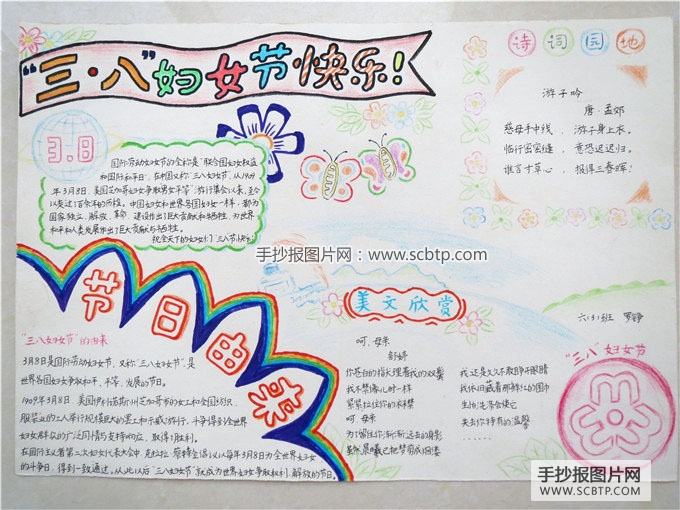 “三·八”妇女节快乐!
诗词园地
游子吟
唐·孟郊
慈母手中线，游子身上衣。
临行密密缝，意恐迟迟归。
谁言寸草心，报得三春晖!
3.8
国际劳动妇女节的全称是“联合国妇女权益
和国际和平日”，在中国又称“三八妇女节”，从1909
年3月8日，美国芝加哥妇女争取男女平等”游行集会以来，至今
以走过了百余年的历程。中国妇女和世界各国妇女一样，都为
国家独立、解放、革命、建设作出了巨大贡献和牺牲，为世界
和平和人类发展作出了巨大贡献与牺牲。
祝全天下的妇女们“三八节”快乐!
手抄报图片网：www.scbtp.com
节日由来
“三八妇女节”的由来
3月8日是国际劳动妇女节，又称“三八妇女节”，是
世界各国妇女争取和平、平等、发展的节日。
1909年3月8日，美国伊利诺斯州芝加哥市的女工和全国纺织、
服装业的工人举行规模巨大的罢工和示威游行，斗争得到全世界
妇女群众的广泛同情与支持响应，取得了胜利。
在国际主义者第二次妇女代表大会中，克拉拉·蔡特金倡议以每年3月8日为全世界妇女
的斗争日，得到一致通过。从此以后“三八妇女节”就成为世界妇女争取权利、解放的节日。
美文欣赏
呵，母亲
舒婷
你苍白的指尖理着我的双鬓
我不禁像儿时一样
紧紧拉住你的衣襟
呵，母亲
为了留住你渐渐远去的身影
虽然晨曦已把梦剪成烟缕
我还是久久不敢睁开眼睛
我依旧藏着那鲜红的围巾
生怕洗涤会使它
失去你特有的温馨
……
六(3)班
“三八”妇女节
手抄报图片网
WWW.SCBTP.COM